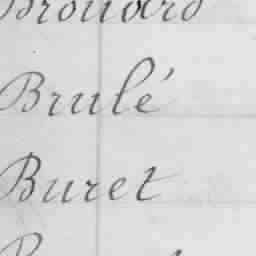 Brouard
Brulé
Buret